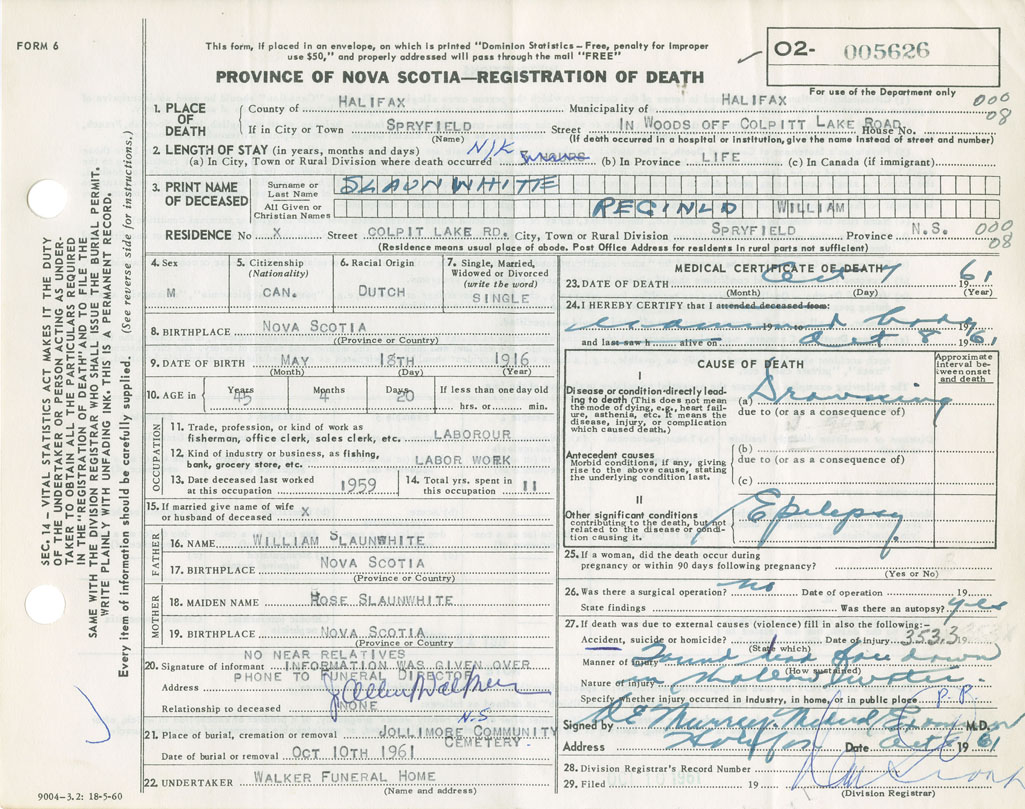 FORM 6
This form, if placed in an envelope, on which is printed "Dominion Statistics – Free, penalty for improper
use $50," and properly addressed will pass through the mail "FREE"
O2- 005626
For use of the Department only
PROVINCE OF NOVA SCOTIA—REGISTRATION OF DEATH
000
08
1. PLACE OF DEATH
County of HALIFAX Municipality of HALIFAX
If in City or Town SPRYFIELD Street IN WOODS OFF COLPITT LAKE ROAD House No.
(Name) (If death occurred in a hospital or institution, give the name instead of street and number)
2. LENGTH OF STAY (in years, months and days)
(a) In City, Town or Rural Division where death occurred N/K (b) In Province LIFE (c) In Canada (if immigrant)
3. PRINT NAME OF DECEASED
Surname or Last Name SLAUNWHITE
All Given or Christian Names REGINLD WILLIAM
RESIDENCE No X Street COLPIT LAKE RD. City, Town or Rural Division SPRYFIELD Province N.S.
000
08
(Residence means usual place of abode. Post Office Address for residents in rural parts not sufficient)
4. Sex
M
5. Citizenship
(Nationality)
CAN.
6. Racial Origin
DUTCH
7. Single, Married,
Widowed or Divorced
(write the word)
SINGLE
8. BIRTHPLACE NOVA SCOTIA
(Province or Country)
9. DATE OF BIRTH MAY 18TH 1916
(Month) (Day) (Year)
10. AGE in
Years 45
Months 4
Days 20
If less than one day old
hrs. or min.
OCCUPATION
11. Trade, profession, or kind of work as
fisherman, office clerk, sales clerk, etc. LABOROUR
12. Kind of industry or business, as fishing,
bank, grocery store, etc. LABOR WORK
13. Date deceased last worked
at this occupation 1959
14. Total yrs. spent in
this occupation 11
15. If married give name of wife
or husband of deceased X
FATHER
16. NAME WILLIAM SLAUNWHITE
17. BIRTHPLACE NOVA SCOTIA
(Province or Country)
MOTHER
18. MAIDEN NAME ROSE SLAUNWHITE
19. BIRTHPLACE NOVA SCOTIA
(Province or Country)
NO NEAR RELATIVES
20. Signature of informant INFORMATION WAS GIVEN OVER
PHONE TO FUNERAL DIRECTOR
Address
Relationship to deceased NONE
N.S
21. Place of burial, cremation or removal JOLLIMORE COMMUNITY
CEMETERY.
Date of burial or removal OCT 10TH 1961
22. UNDERTAKER WALKER FUNERAL HOME
(Name and address)
MEDICAL CERTIFICATE OF DEATH
23. DATE OF DEATH Oct 7 1961
(Month) (Day) (Year)
24. I HEREBY CERTIFY that I attended deceased from:
examined body 19 to 19
and last saw h alive on Oct 8 1961
CAUSE OF DEATH
Approximate
interval be-
tween onset
and death
I
Disease or condition directly lead-
ing to death (This does not mean
the mode of dying, e.g., heart fail-
ure, asthenia, etc. It means the
disease, injury, or complication
which caused death.)
(a) Drowning
due to (or as a consequence of)
Antecedent causes
Morbid conditions, if any, giving
rise to the above cause, stating
the underlying condition last.
(b)
due to (or as a consequence of)
(c)
II
Other significant conditions
contributing to the death, but not
related to the disease or condi-
tion causing it.
Epilepsy
25. If a woman, did the death occur during
pregnancy or within 90 days following pregnancy?
(Yes or No)
26. Was there a surgical operation? no Date of operation 19
State findings Was there an autopsy? yes
27. If death was due to external causes (violence) fill in also the following:-
Accident, suicide or homicide? Date of injury 19
353.3
(State which)
Manner of injury Found dead face down
(How sustained)
Nature of injury in shallow water.
Specify whether injury occurred in industry, in home, or in public place P.P.
Signed by M.D.
Address Halifax Date Oct 1961
28. Division Registrar's Record Number
29. Filed OCT 10 1961 19
(Division Registrar)
SEC. 14 – VITAL STATISTICS ACT MAKES IT THE DUTY
OF THE UNDERTAKER OR PERSON ACTING AS UNDER-
TAKER TO OBTAIN ALL THE PARTICULARS REQUIRED
IN THE "REGISTRATION OF DEATH" AND TO FILE THE
SAME WITH THE DIVISION REGISTRAR WHO SHALL ISSUE THE BURIAL PERMIT.
WRITE PLAINLY WITH UNFADING INK. THIS IS A PERMANENT RECORD.
Every item of information should be carefully supplied. (See reverse side for instructions.)
9004-3.2: 18-5-60